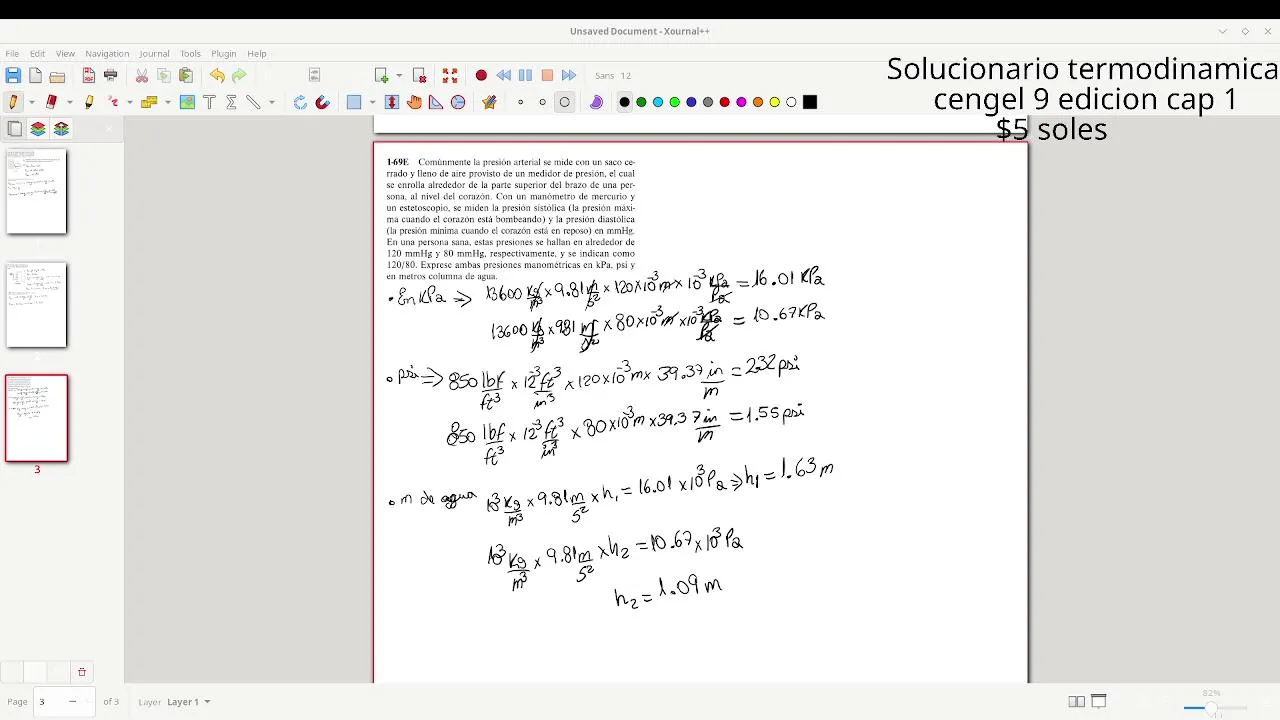 Unsaved Document - Xournal++
File Edit View Navigation Journal Tools Plugin Help
Sans 12
Solucionario termodinamica
cengel 9 edicion cap 1
$5 soles
1-69E Comúnmente la presión arterial se mide con un saco ce-
rrado y lleno de aire provisto de un medidor de presión, el cual
se enrolla alrededor de la parte superior del brazo de una per-
sona, al nivel del corazón. Con un manómetro de mercurio y
un estetoscopio, se miden la presión sistólica (la presión máxi-
ma cuando el corazón está bombeando) y la presión diastólica
(la presión mínima cuando el corazón está en reposo) en mmHg.
En una persona sana, estas presiones se hallan en alrededor de
120 mmHg y 80 mmHg, respectivamente, y se indican como
120/80. Exprese ambas presiones manométricas en kPa, psi y
en metros columna de agua.
• En KPa => 13600 kg/m³ × 9.81 m/s² × 120×10⁻³ m × 10⁻³ KPa/Pa = 16.01 KPa
13600 kg/m³ × 9.81 m/s² × 80×10⁻³ m × 10⁻³ KPa/Pa = 10.67 KPa
• psi => 850 lbf/ft³ × 12⁻³ ft³/in³ × 120×10⁻³ m × 39.37 in/m = 2.32 psi
850 lbf/ft³ × 12⁻³ ft³/in³ × 80×10⁻³ m × 39.37 in/m = 1.55 psi
• m de agua 10³ Kg/m³ × 9.81 m/s² × h₁ = 16.01 × 10³ Pa => h₁ = 1.63 m
10³ Kg/m³ × 9.81 m/s² × h₂ = 10.67 × 10³ Pa
h₂ = 1.09 m
3
Page 3 of 3 Layer Layer 1
82%